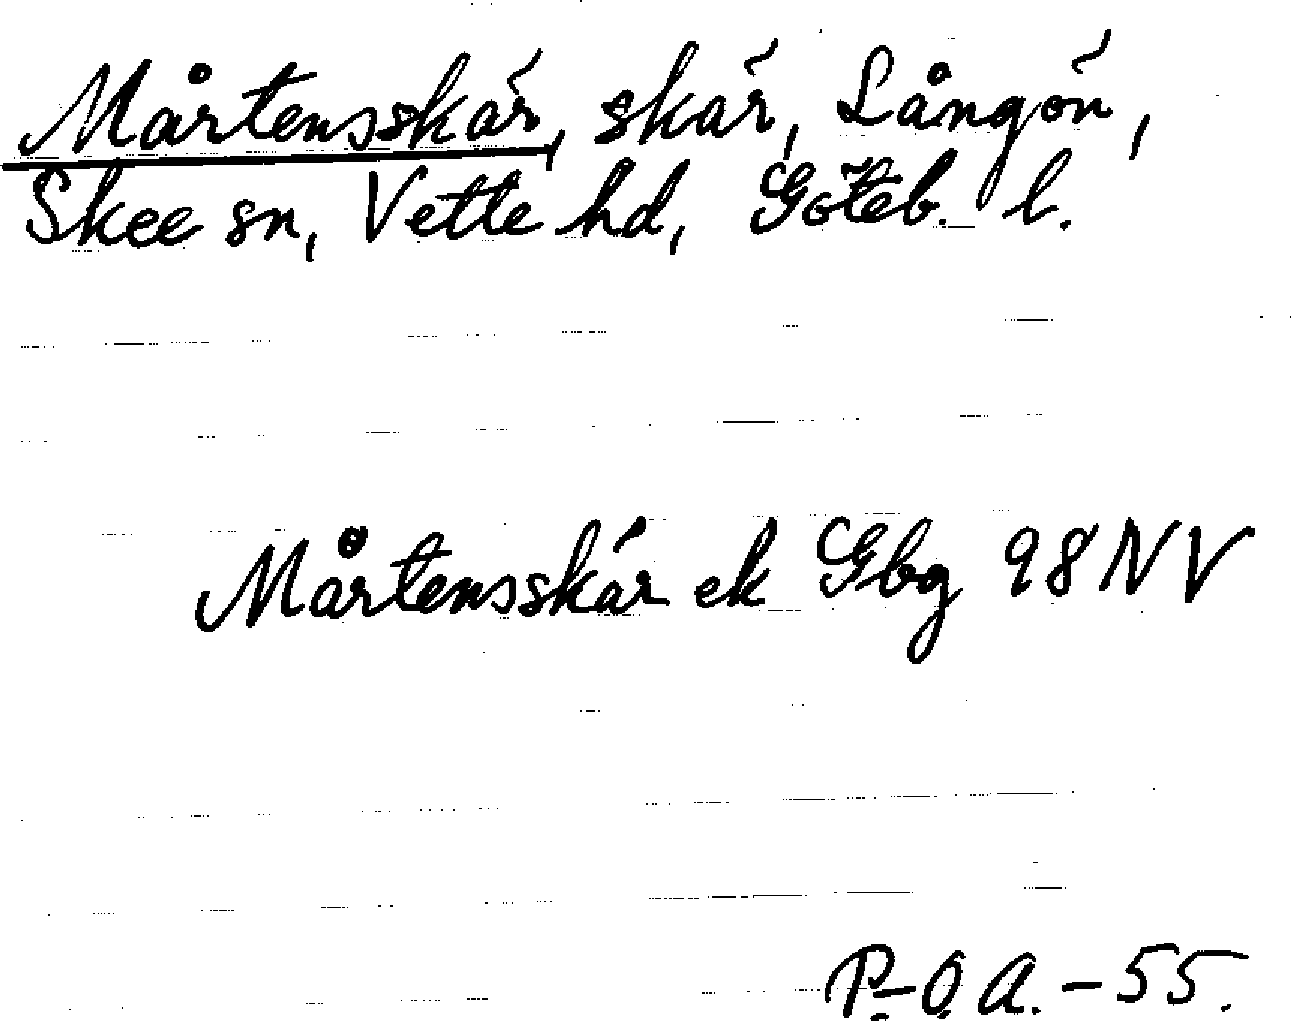 Mårtensskär, skär, Långön,
Skee sn, Vette hd, Göteb. l.
Mårtensskär ek Gbg 98 NV
P.-O. A. -55.